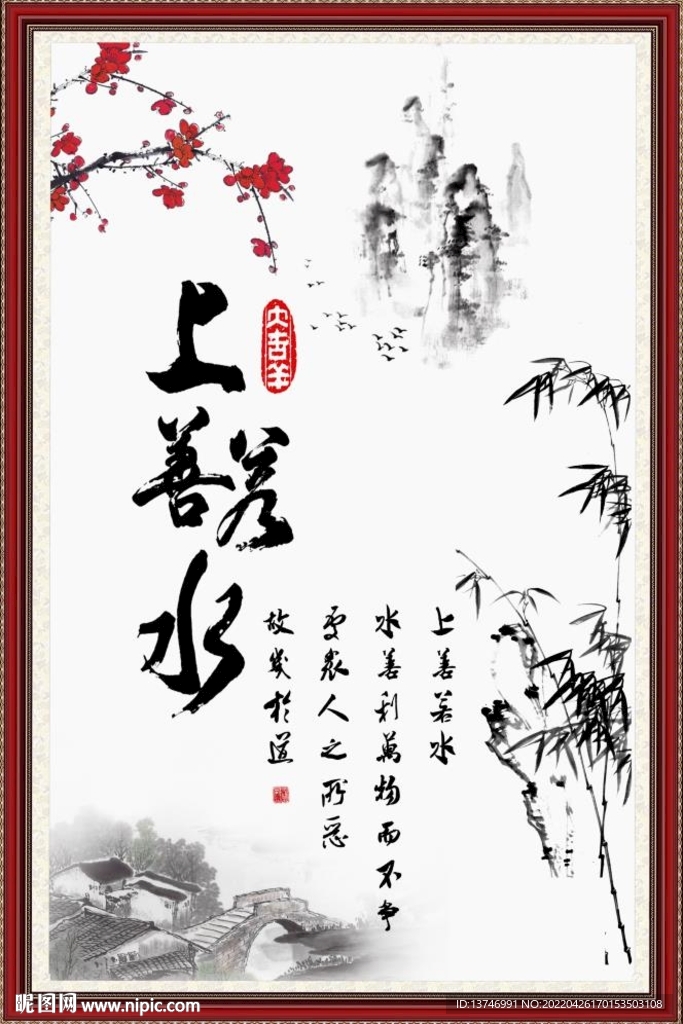 上善若水
大吉羊
上善若水
水善利萬物而不争
處衆人之所惡
故幾於道
昵图网 www.nipic.com
ID:13746991 NO:20220426170153503108